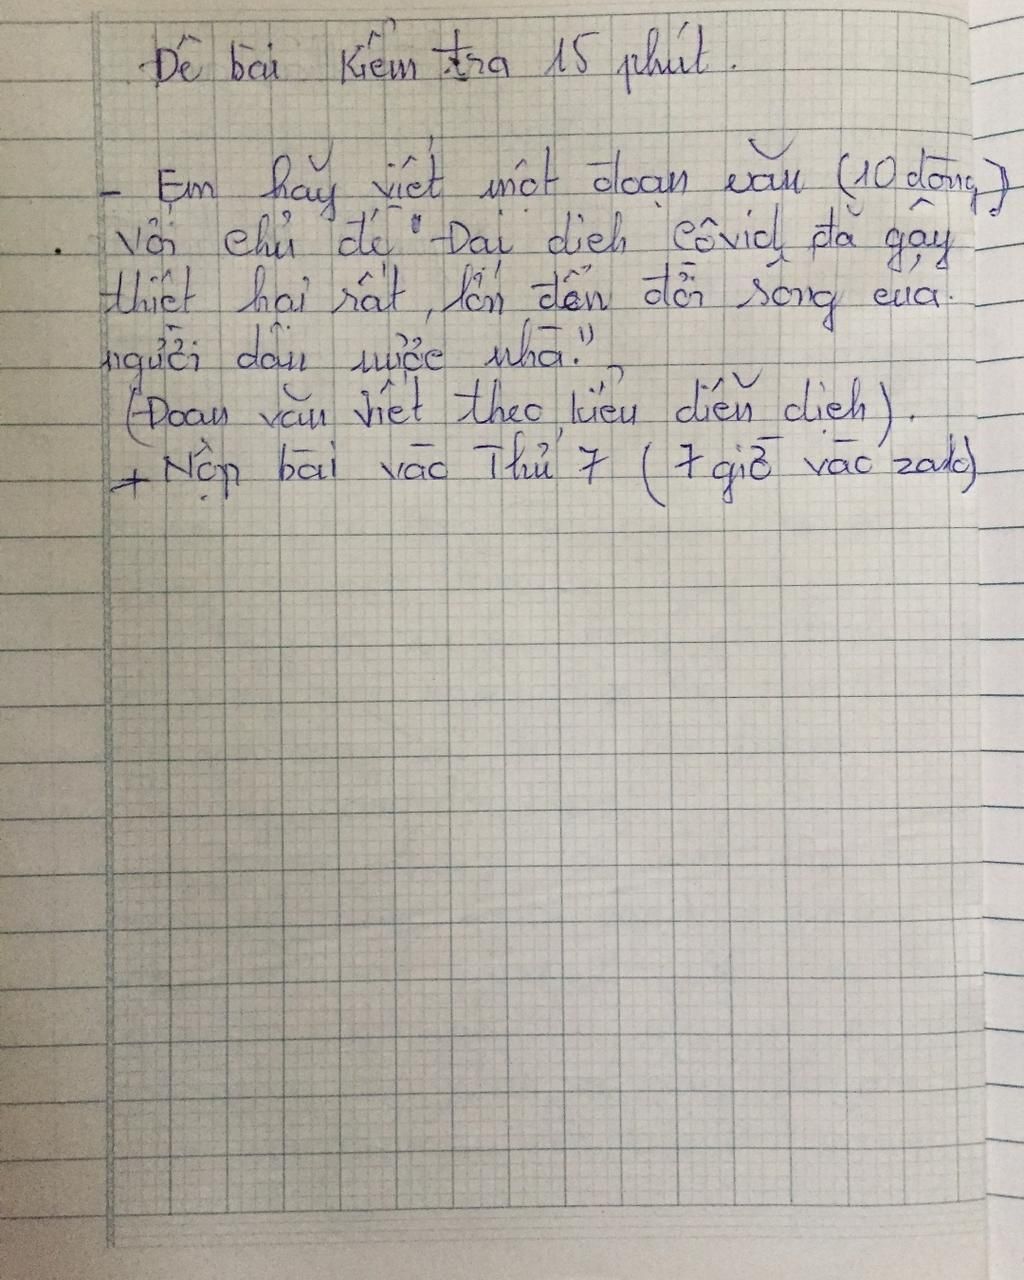 Đề bài Kiểm tra 15 phút.
- Em hãy viết một đoạn văn (10 dòng)
với chủ đề "Đại dịch Côvid đã gây
thiệt hại rất lớn đến đời sống của
người dân nước nhà."
(Đoạn văn viết theo kiểu diễn dịch).
+ Nộp bài vào Thứ 7 (7 giờ vào zalo)